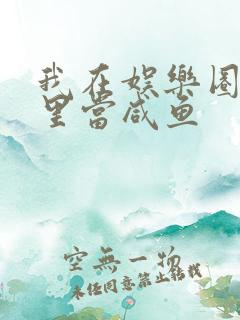 我在娱樂圈
里當咸魚
空無一物
未经同意禁止转载